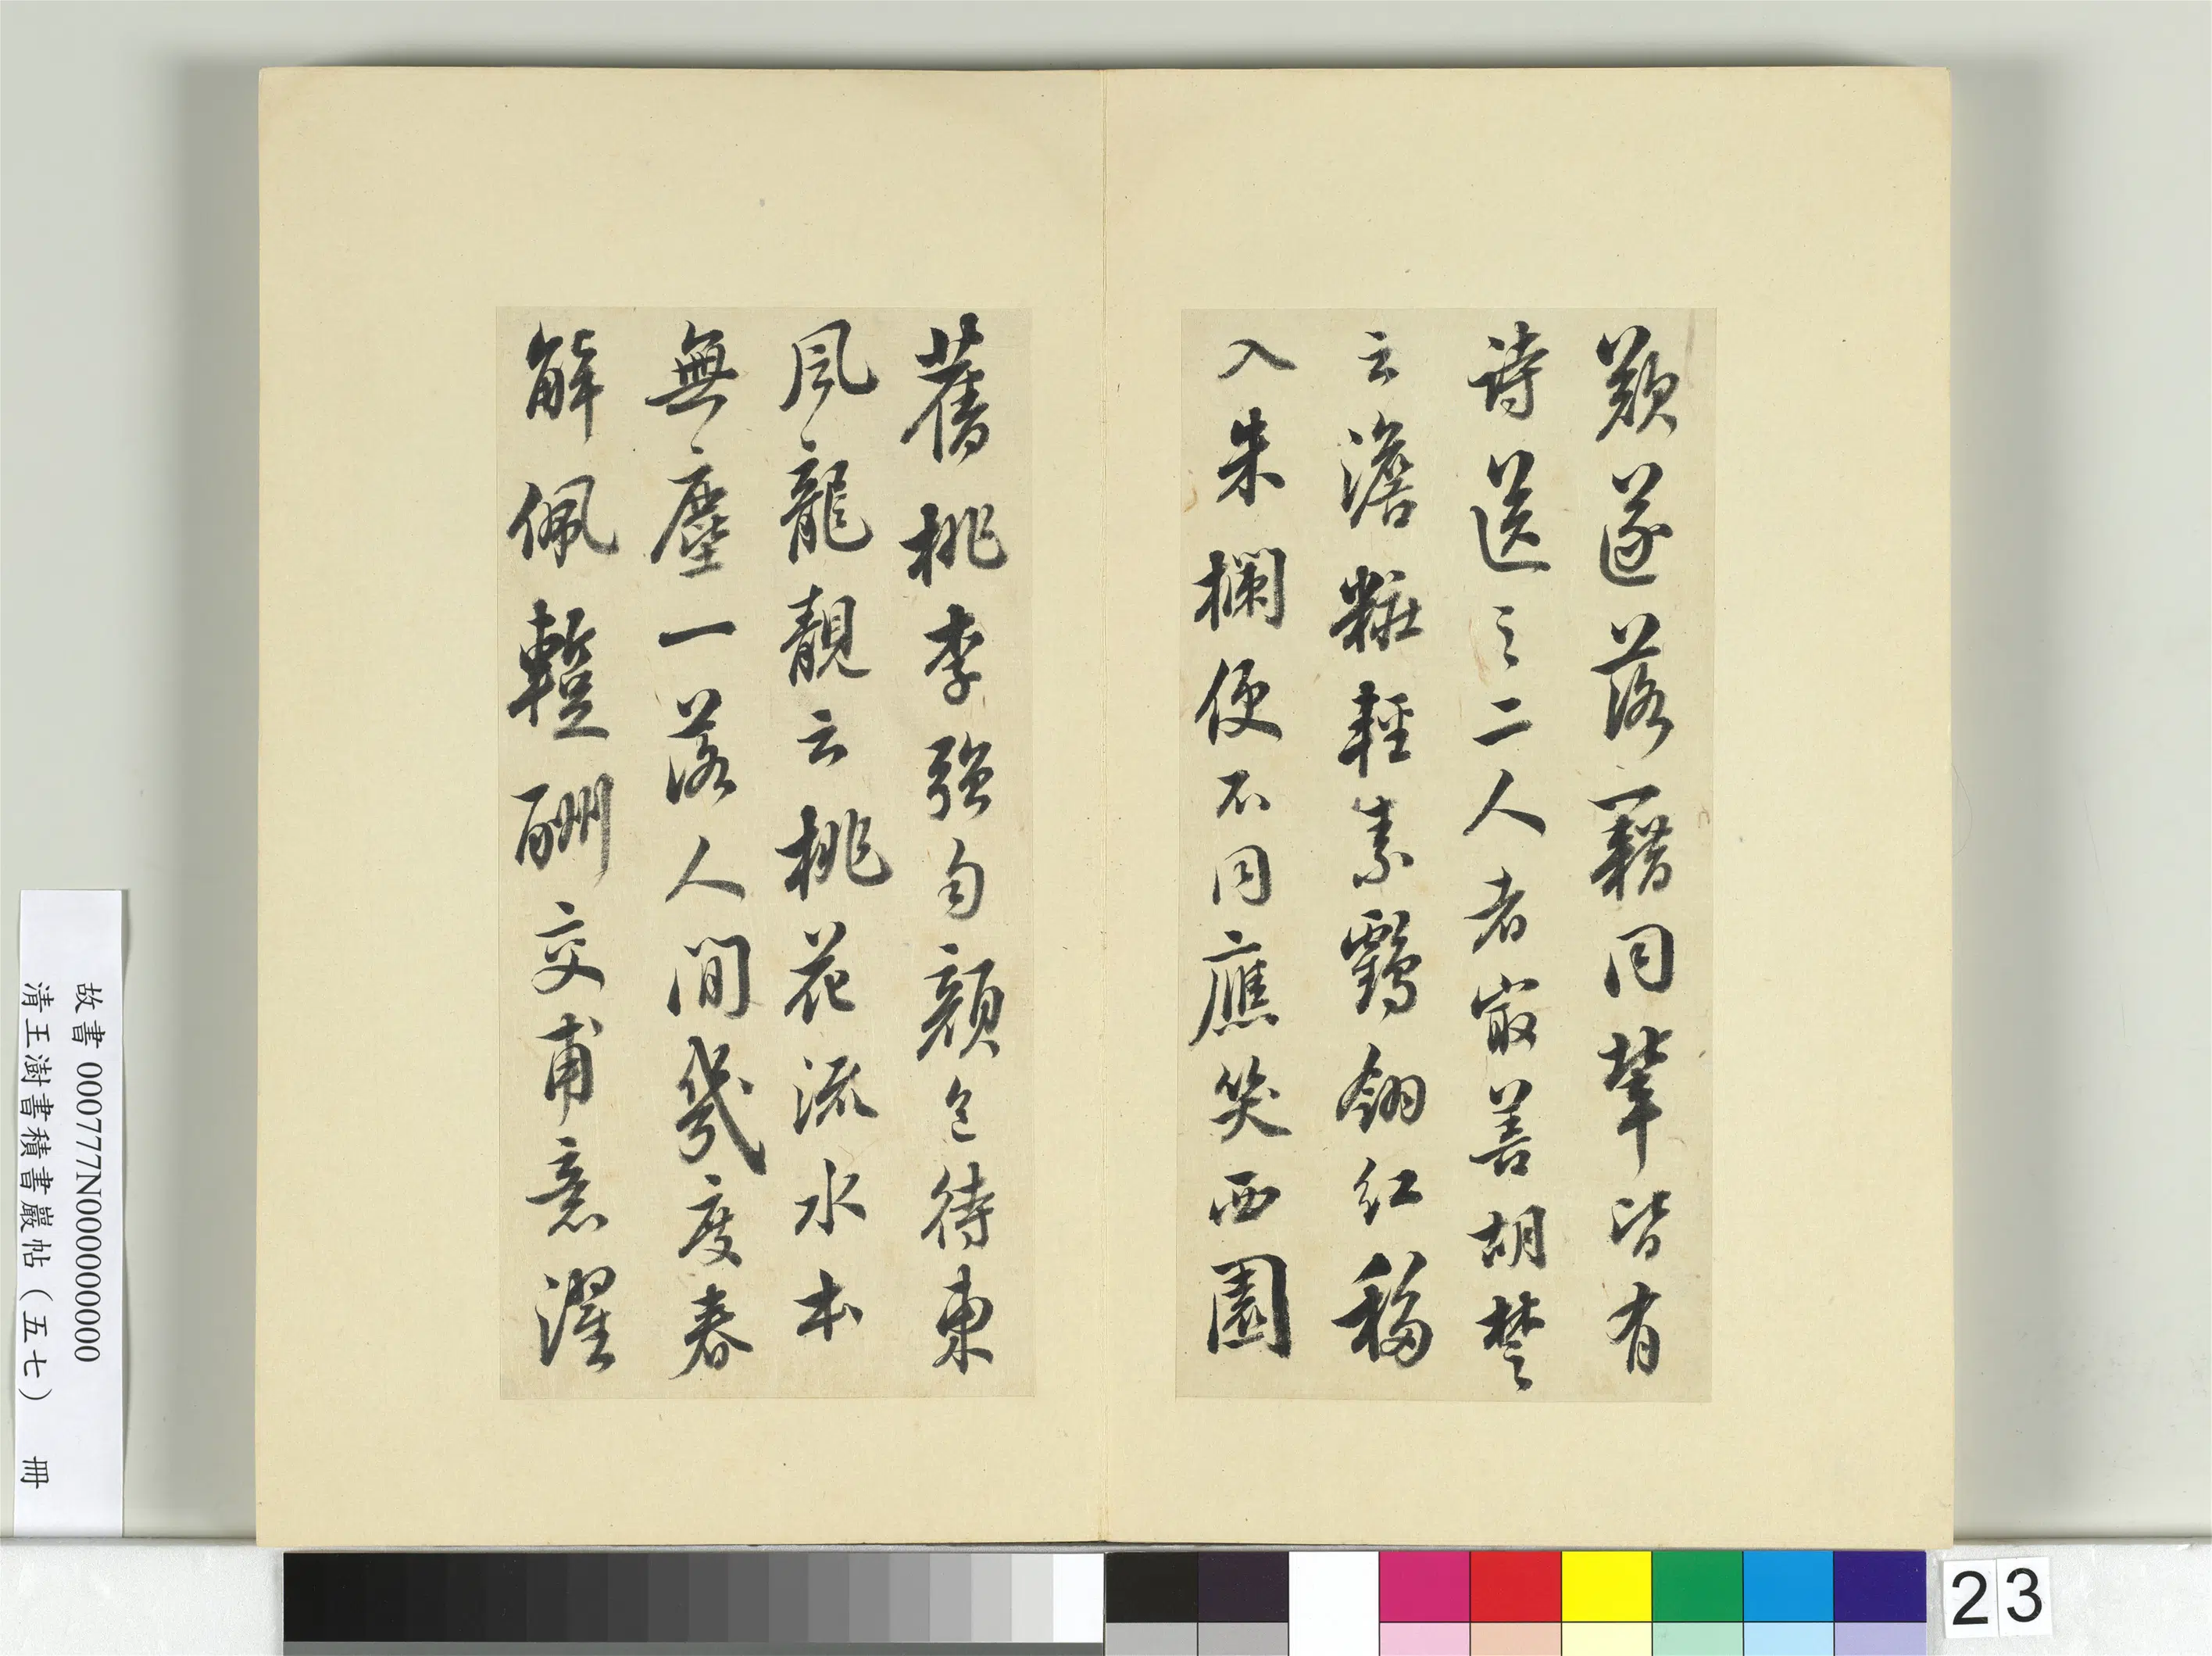 歎遂落籍同輩皆有
詩送之二人者最善胡楚
云澹粧輕素鶴翎紅移
入朱欄便不同應笑西園
舊桃李強勻顏色待東
風龍靚云桃花流水本
無塵一落人間幾度春
解佩蹔酬交甫意濯
故書 000777N000000000
清王澍書積書巖帖（五七） 冊
23